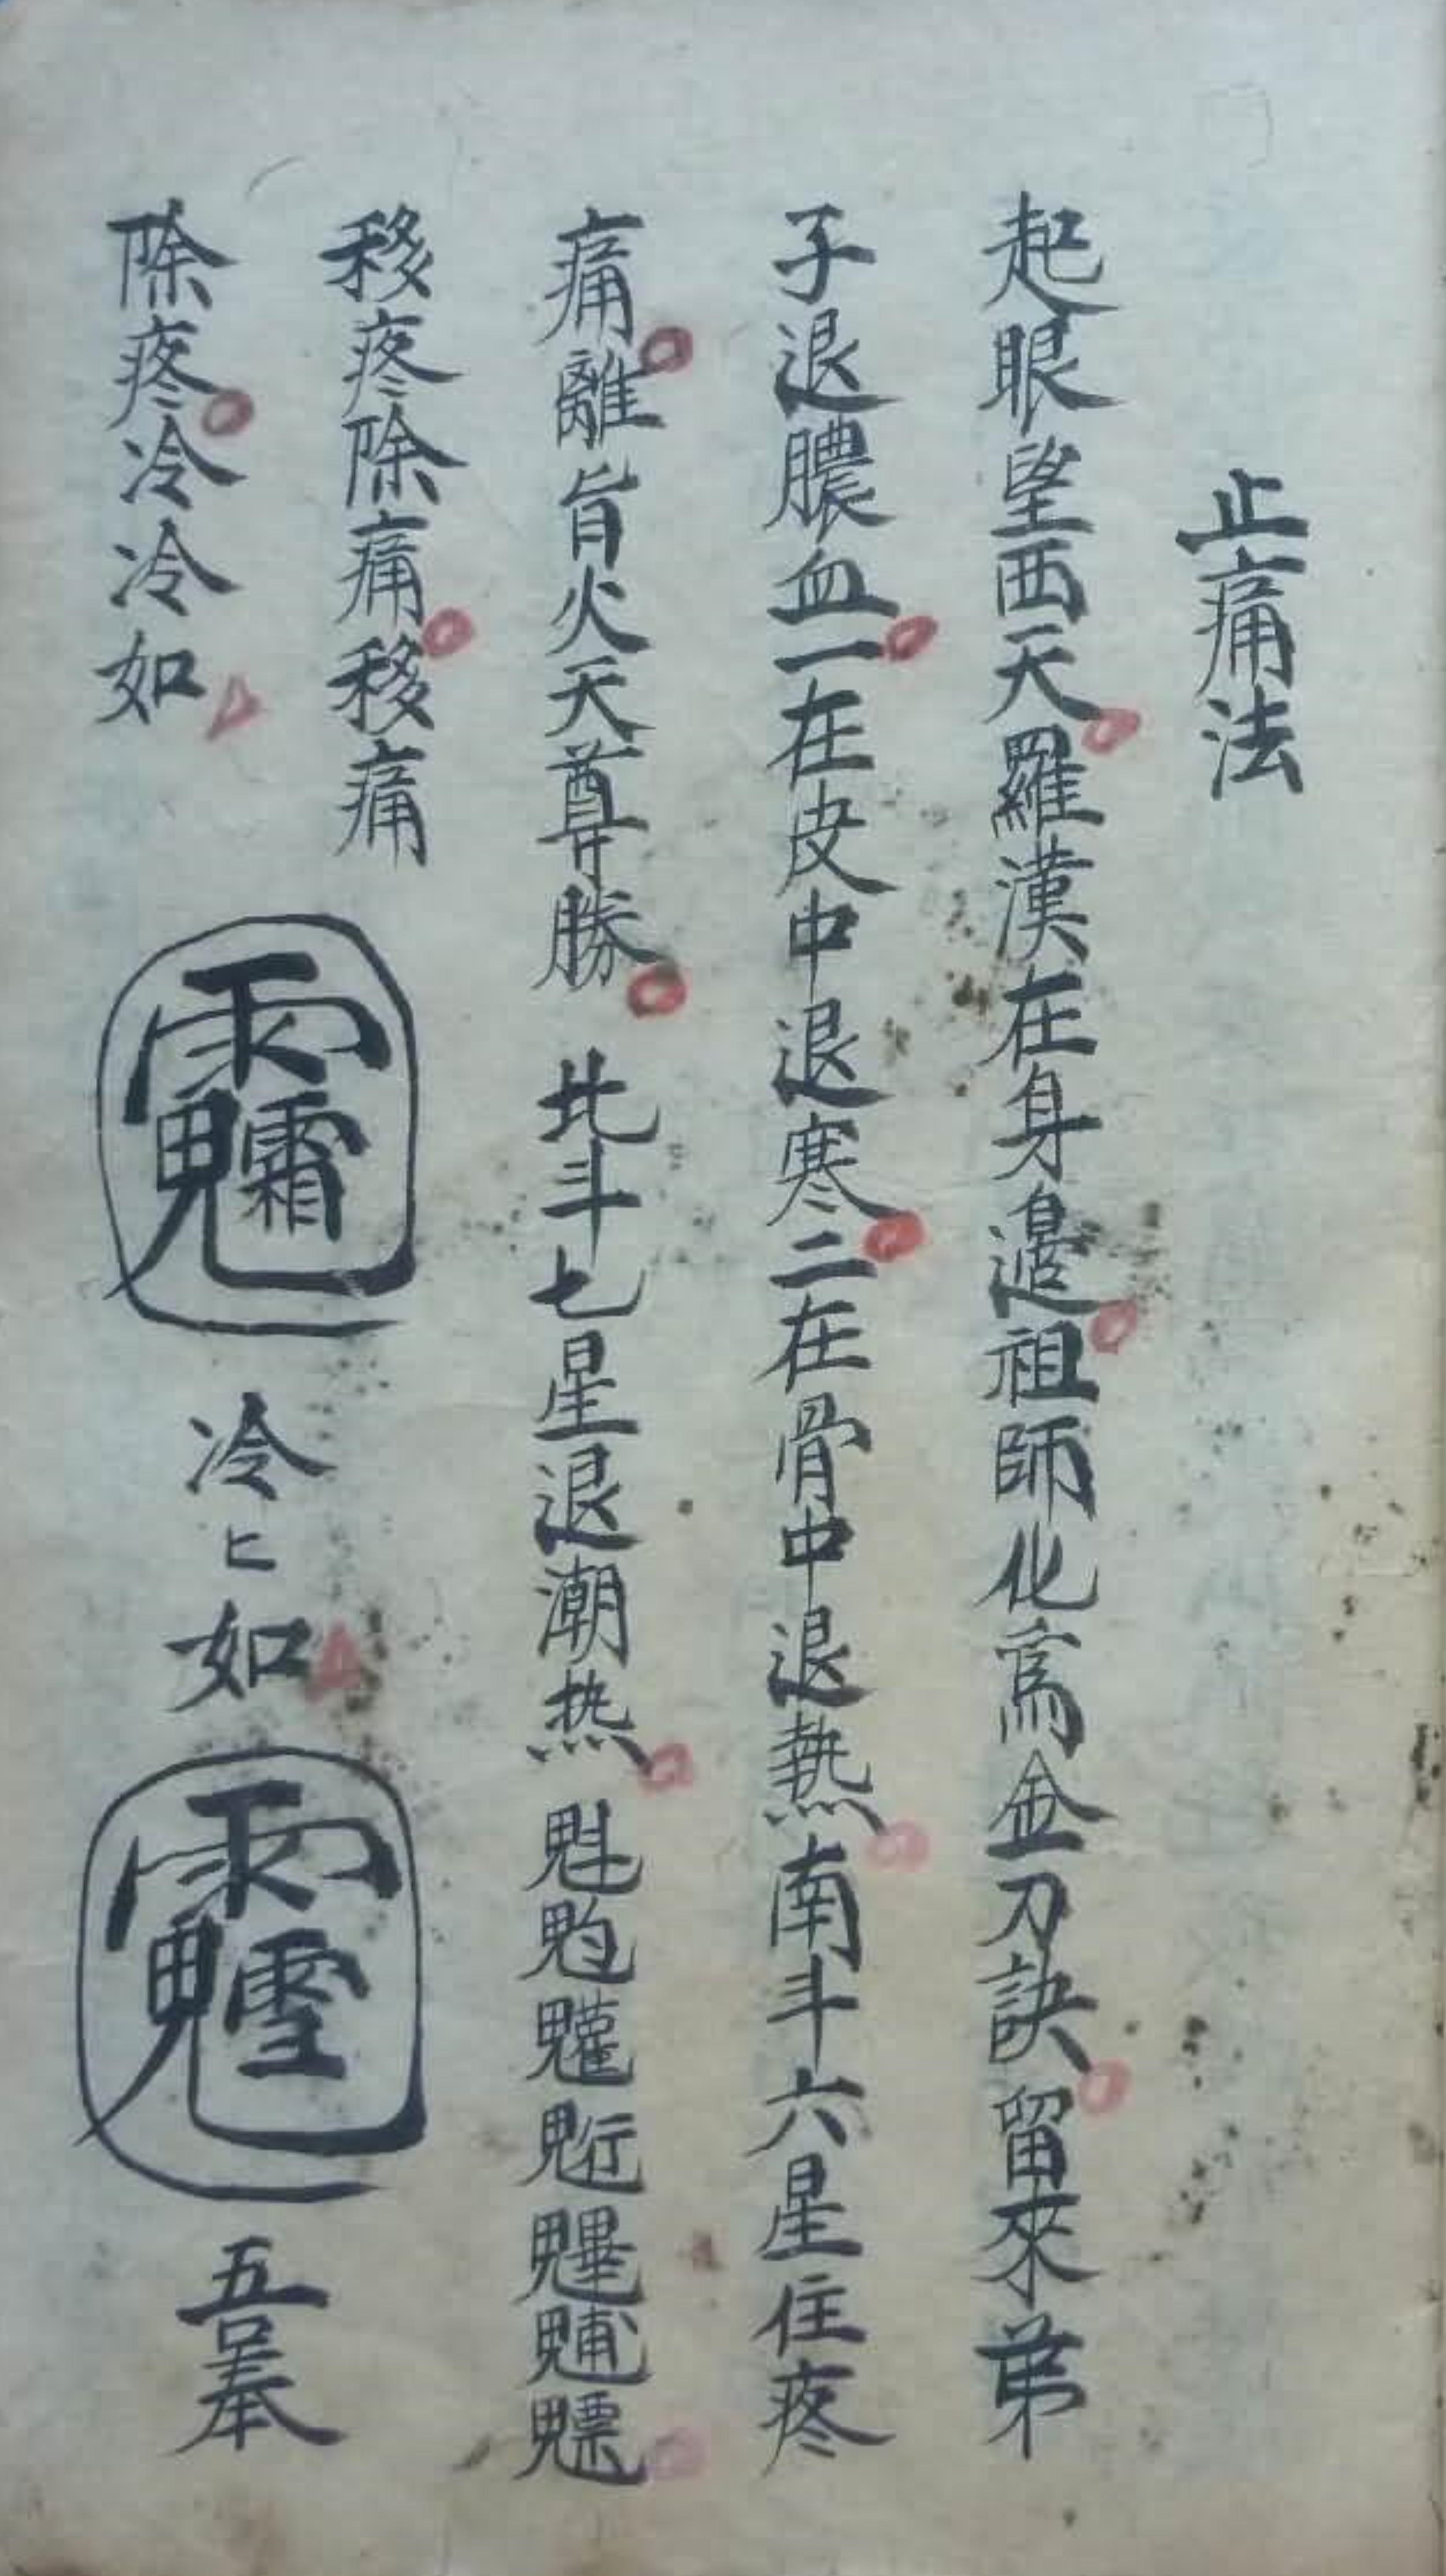 止痛法
起眼望西天羅漢在身邊祖師化為金刀訣留來弟
子退膿血一在皮中退寒二在骨中退熱南斗六星住疼
痛離旨火天尊勝北斗七星退潮热魁魈魓
移疼除痛移移痛
除疼冷冷如
冷匕如
吾奉